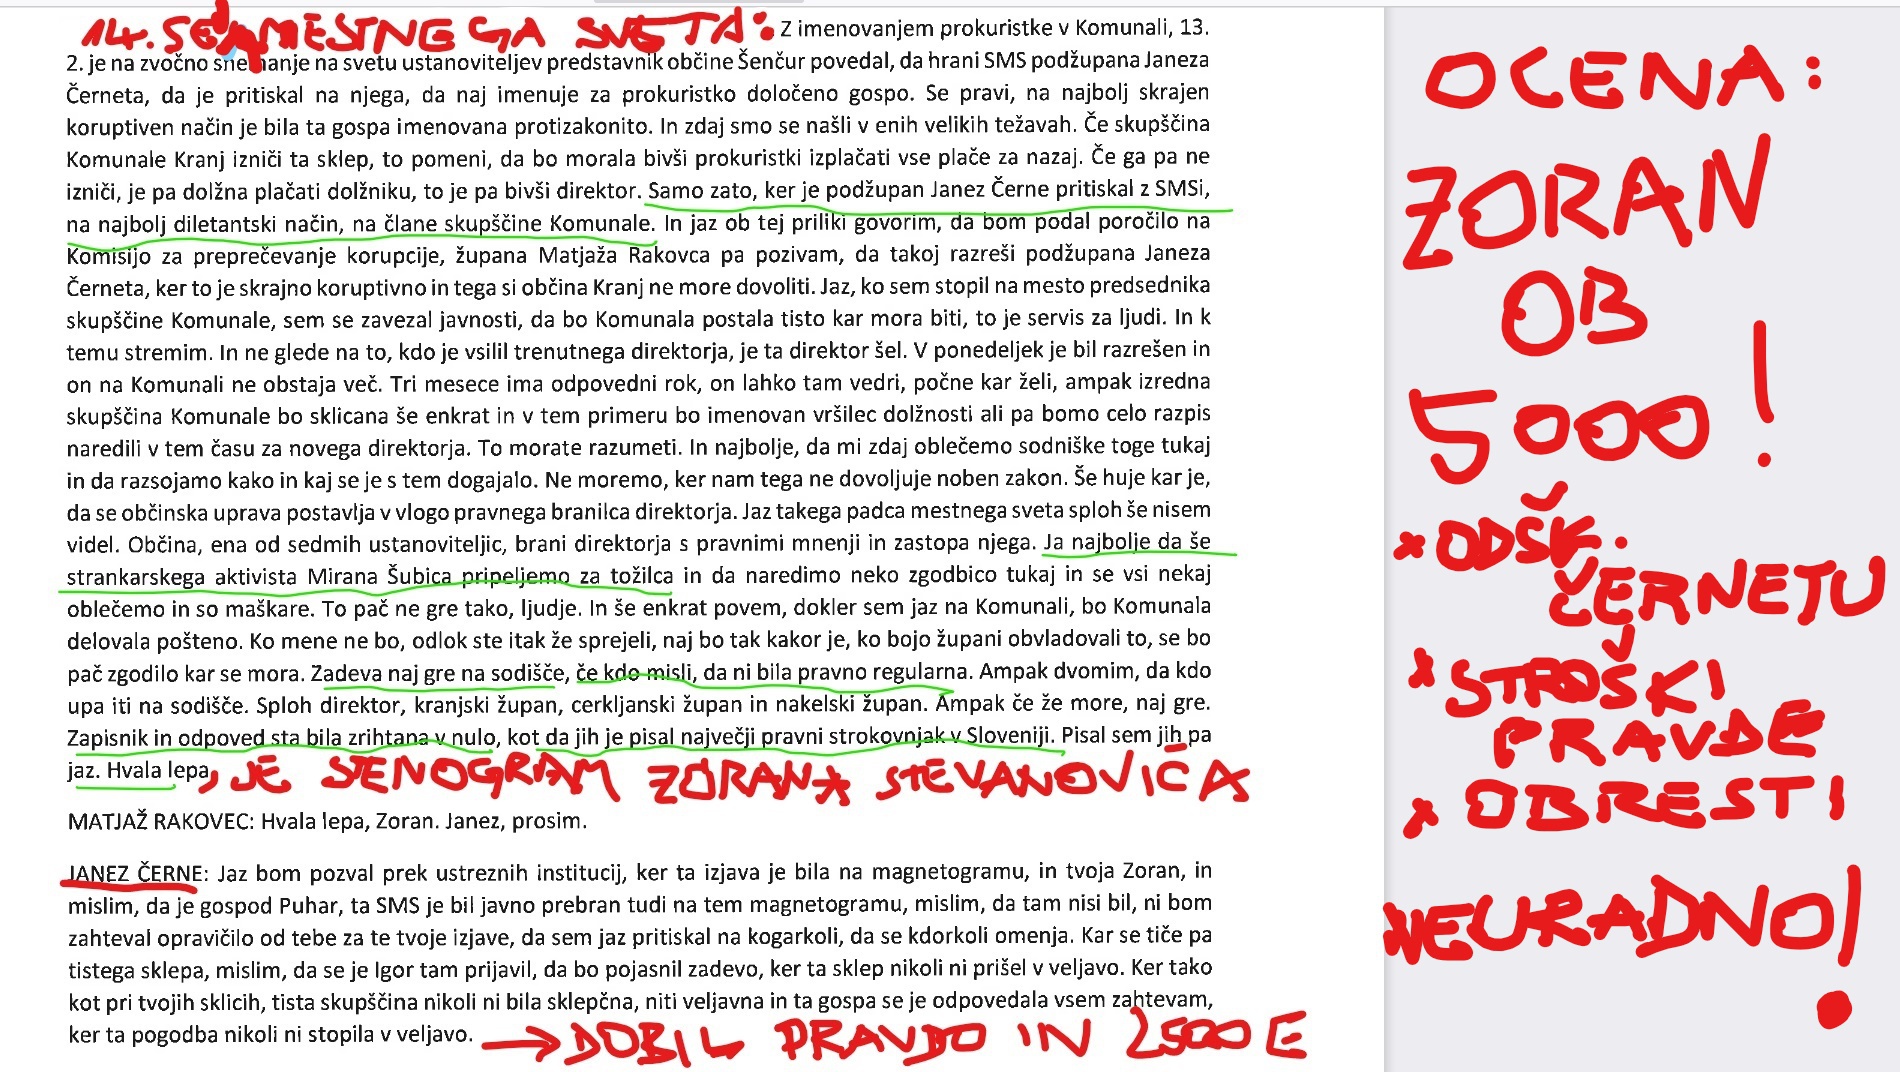 14. SEJA MESTNEGA SVETA: Z imenovanjem prokuristke v Komunali, 13.
2. je na zvočno snemanje na svetu ustanoviteljev predstavnik občine Šenčur povedal, da hrani SMS podžupana Janeza
Černeta, da je pritiskal na njega, da naj imenuje za prokuristko določeno gospo. Se pravi, na najbolj skrajen
koruptiven način je bila ta gospa imenovana protizakonito. In zdaj smo se našli v enih velikih težavah. Če skupščina
Komunale Kranj izniči ta sklep, to pomeni, da bo morala bivši prokuristki izplačati vse plače za nazaj. Če ga pa ne
izniči, je pa dolžna plačati dolžniku, to je pa bivši direktor. Samo zato, ker je podžupan Janez Černe pritiskal z SMSi,
na najbolj diletantski način, na člane skupščine Komunale. In jaz ob tej priliki govorim, da bom podal poročilo na
Komisijo za preprečevanje korupcije, župana Matjaža Rakovca pa pozivam, da takoj razreši podžupana Janeza
Černeta, ker to je skrajno koruptivno in tega si občina Kranj ne more dovoliti. Jaz, ko sem stopil na mesto predsednika
skupščine Komunale, sem se zavezal javnosti, da bo Komunala postala tisto kar mora biti, to je servis za ljudi. In k
temu stremim. In ne glede na to, kdo je vsilil trenutnega direktorja, je ta direktor šel. V ponedeljek je bil razrešen in
on na Komunali ne obstaja več. Tri mesece ima odpovedni rok, on lahko tam vedri, počne kar želi, ampak izredna
skupščina Komunale bo sklicana še enkrat in v tem primeru bo imenovan vršilec dolžnosti ali pa bomo celo razpis
naredili v tem času za novega direktorja. To morate razumeti. In najbolje, da mi zdaj oblečemo sodniške toge tukaj
in da razsojamo kako in kaj se je s tem dogajalo. Ne moremo, ker nam tega ne dovoljuje noben zakon. Še huje kar je,
da se občinska uprava postavlja v vlogo pravnega branilca direktorja. Jaz takega padca mestnega sveta sploh še nisem
videl. Občina, ena od sedmih ustanoviteljic, brani direktorja s pravnimi mnenji in zastopa njega. Ja najbolje da še
strankarskega aktivista Mirana Šubica pripeljemo za tožilca in da naredimo neko zgodbico tukaj in se vsi nekaj
oblečemo in so maškare. To pač ne gre tako, ljudje. In še enkrat povem, dokler sem jaz na Komunali, bo Komunala
delovala pošteno. Ko mene ne bo, odlok ste itak že sprejeli, naj bo tak kakor je, ko bojo župani obvladovali to, se bo
pač zgodilo kar se mora. Zadeva naj gre na sodišče, če kdo misli, da ni bila pravno regularna. Ampak dvomim, da kdo
upa iti na sodišče. Sploh direktor, kranjski župan, cerkljanski župan in nakelski župan. Ampak če že more, naj gre.
Zapisnik in odpoved sta bila zrihtana v nulo, kot da jih je pisal največji pravni strokovnjak v Sloveniji. Pisal sem jih pa
jaz. Hvala lepa, JE STENOGRAM ZORANA STEVANOVIČA
MATJAŽ RAKOVEC: Hvala lepa, Zoran. Janez, prosim.
JANEZ ČERNE: Jaz bom pozval prek ustreznih institucij, ker ta izjava je bila na magnetogramu, in tvoja Zoran, in
mislim, da je gospod Puhar, ta SMS je bil javno prebran tudi na tem magnetogramu, mislim, da tam nisi bil, ni bom
zahteval opravičilo od tebe za te tvoje izjave, da sem jaz pritiskal na kogarkoli, da se kdorkoli omenja. Kar se tiče pa
tistega sklepa, mislim, da se je Igor tam prijavil, da bo pojasnil zadevo, ker ta sklep nikoli ni prišel v veljavo. Ker tako
kot pri tvojih sklicih, tista skupščina nikoli ni bila sklepčna, niti veljavna in ta gospa se je odpovedala vsem zahtevam,
ker ta pogodba nikoli ni stopila v veljavo. → DOBIL PRAVDO IN 2500 E
OCENA:
ZORAN
OB
5000!
x ODŠK.
ČERNETU
x STROŠKI
PRAVDE
x OBRESTI
NEURADNO!